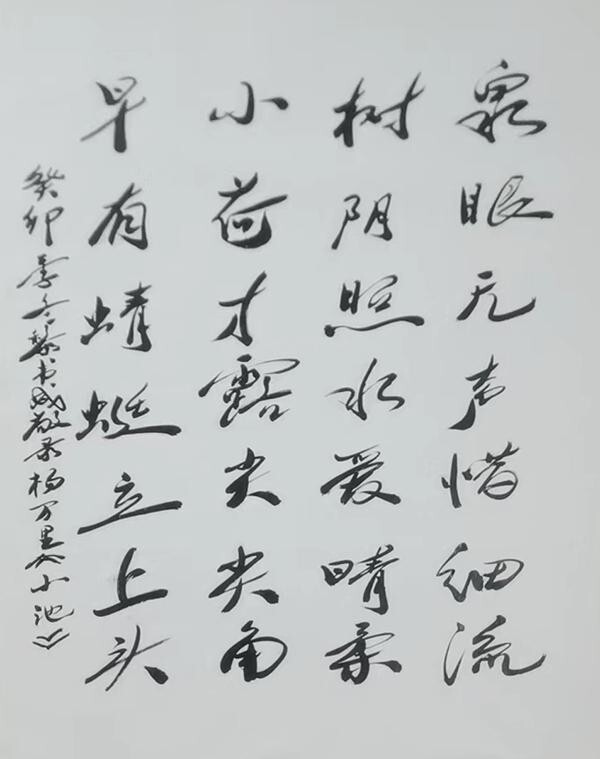 泉眼无声惜细流
树阴照水爱晴柔
小荷才露尖尖角
早有蜻蜓立上头
癸卯季冬黎书敬录杨万里《小池》